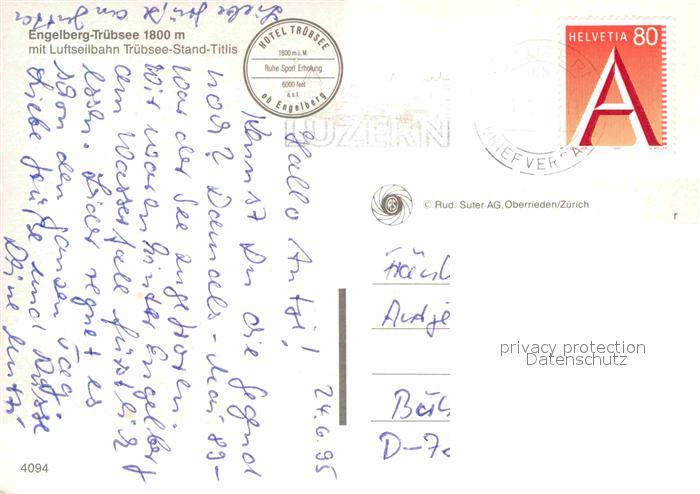 Engelberg-Trübsee 1800 m
mit Luftseilbahn Trübsee-Stand-Titlis
HOTEL TRÜBSEE
1800 m ü. M.
Ruhe Sport Erholung
6000 feet
a.s.l.
ob Engelberg
LUZERN
BRIEFVERSA
HELVETIA 80
A
© Rud. Suter AG, Oberrieden/Zürich
r
24.6.95
Hallo Antje!
Kennst Du die Gegend
noch? Damals - Mai 89 -
war der See zugefroren
Wir waren hinter Engelberg
am Wasserfall
essen. Leider regnet es
schon den ganzen Tag.
Liebe Grüße und Küsse
Deine Mutti
Liebe Grüße
D-7
privacy protection
Datenschutz
4094